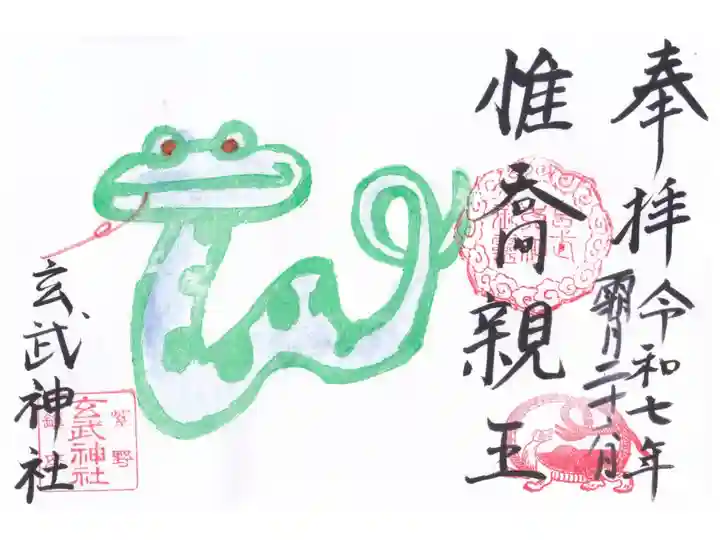 奉拝
令和七年
霜月二十六日
惟喬親王
玄武神社
紫野
玄武神社